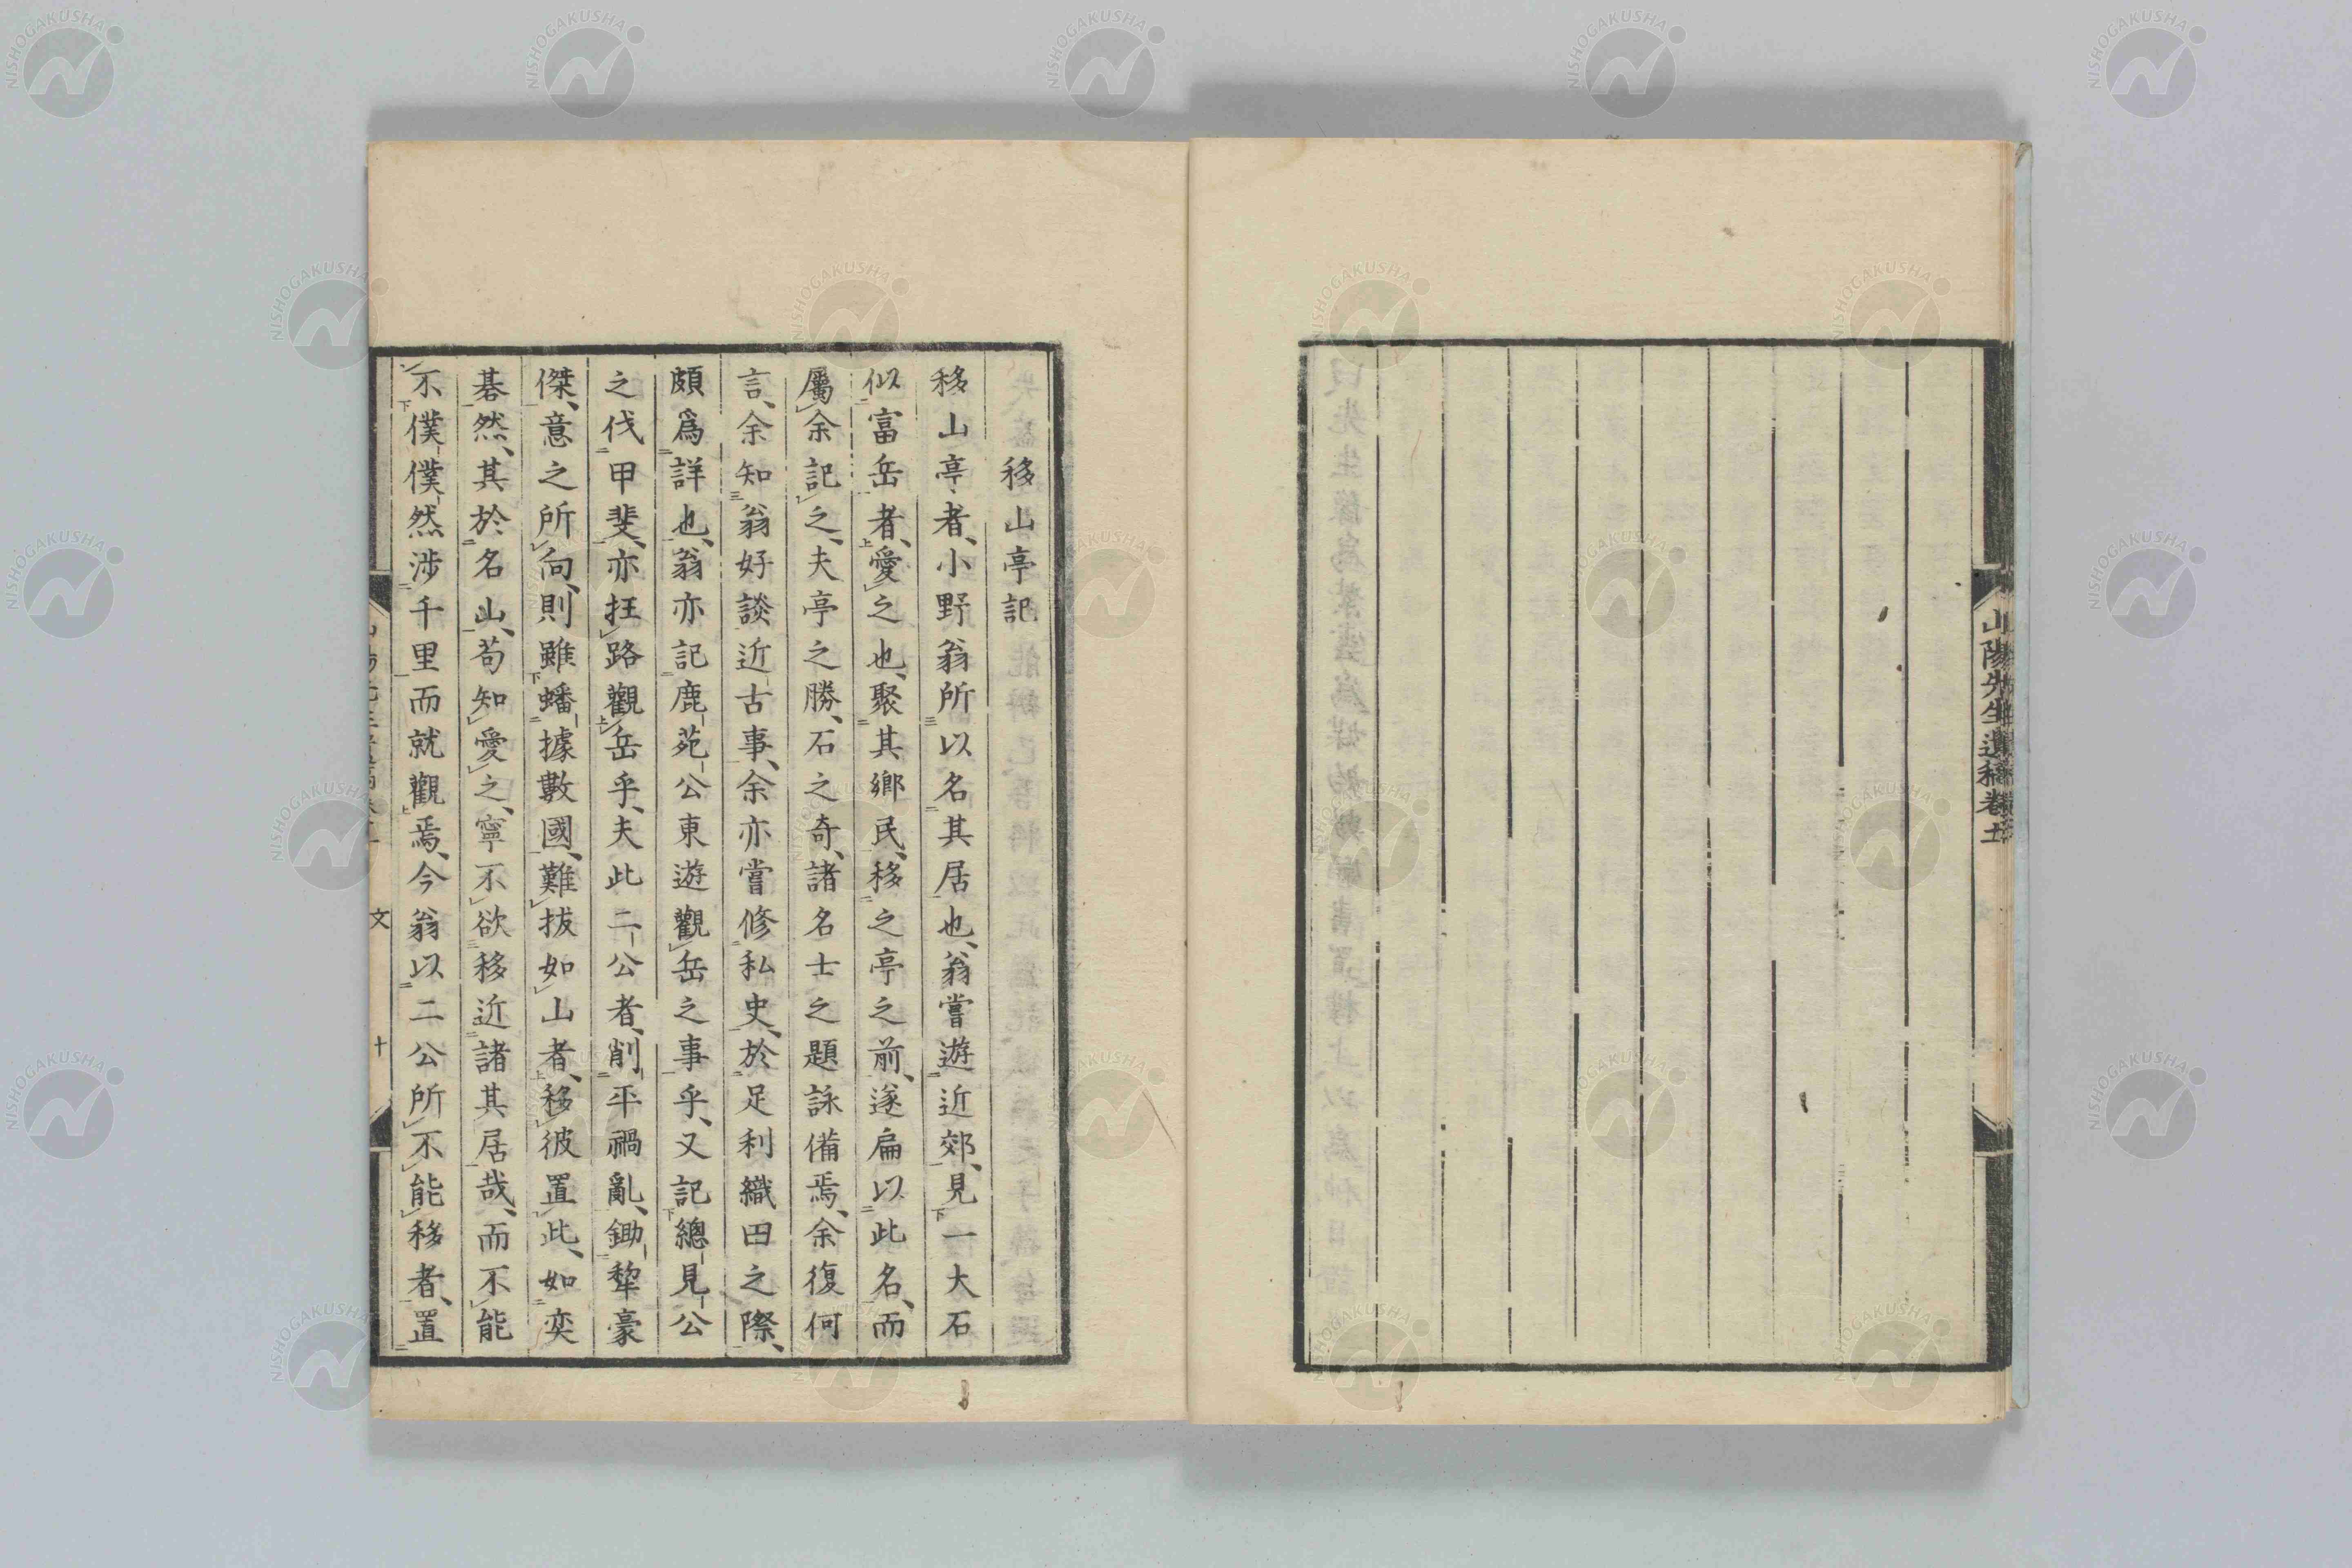 山陽先生遺稿卷
移山亭記
移山亭者、小野翁所以名其居也、翁嘗遊近郊、見一大石
似富岳者、愛之也、聚其鄉民、移之亭之前、遂扁以此名、而
屬余記之、夫亭之勝、石之奇、諸名士之題詠備焉、余復何
言、余知翁好談近古事、余亦嘗修私史、於足利織田之際、
頗爲詳也、翁亦記鹿苑公東遊觀岳之事乎、又記總見公
之伐甲斐、亦抂路觀岳乎、夫此二公者、削平禍亂、鋤犂豪
傑、意之所向、則雖蟠據數國、難拔如山者、移彼置此、如奕
碁然、其於名山、苟知愛之、寧不欲移近諸其居哉、而不能
不僕僕然涉千里而就觀焉、今翁以二公所不能移者、置
文
十
NISHOGAKUSHA